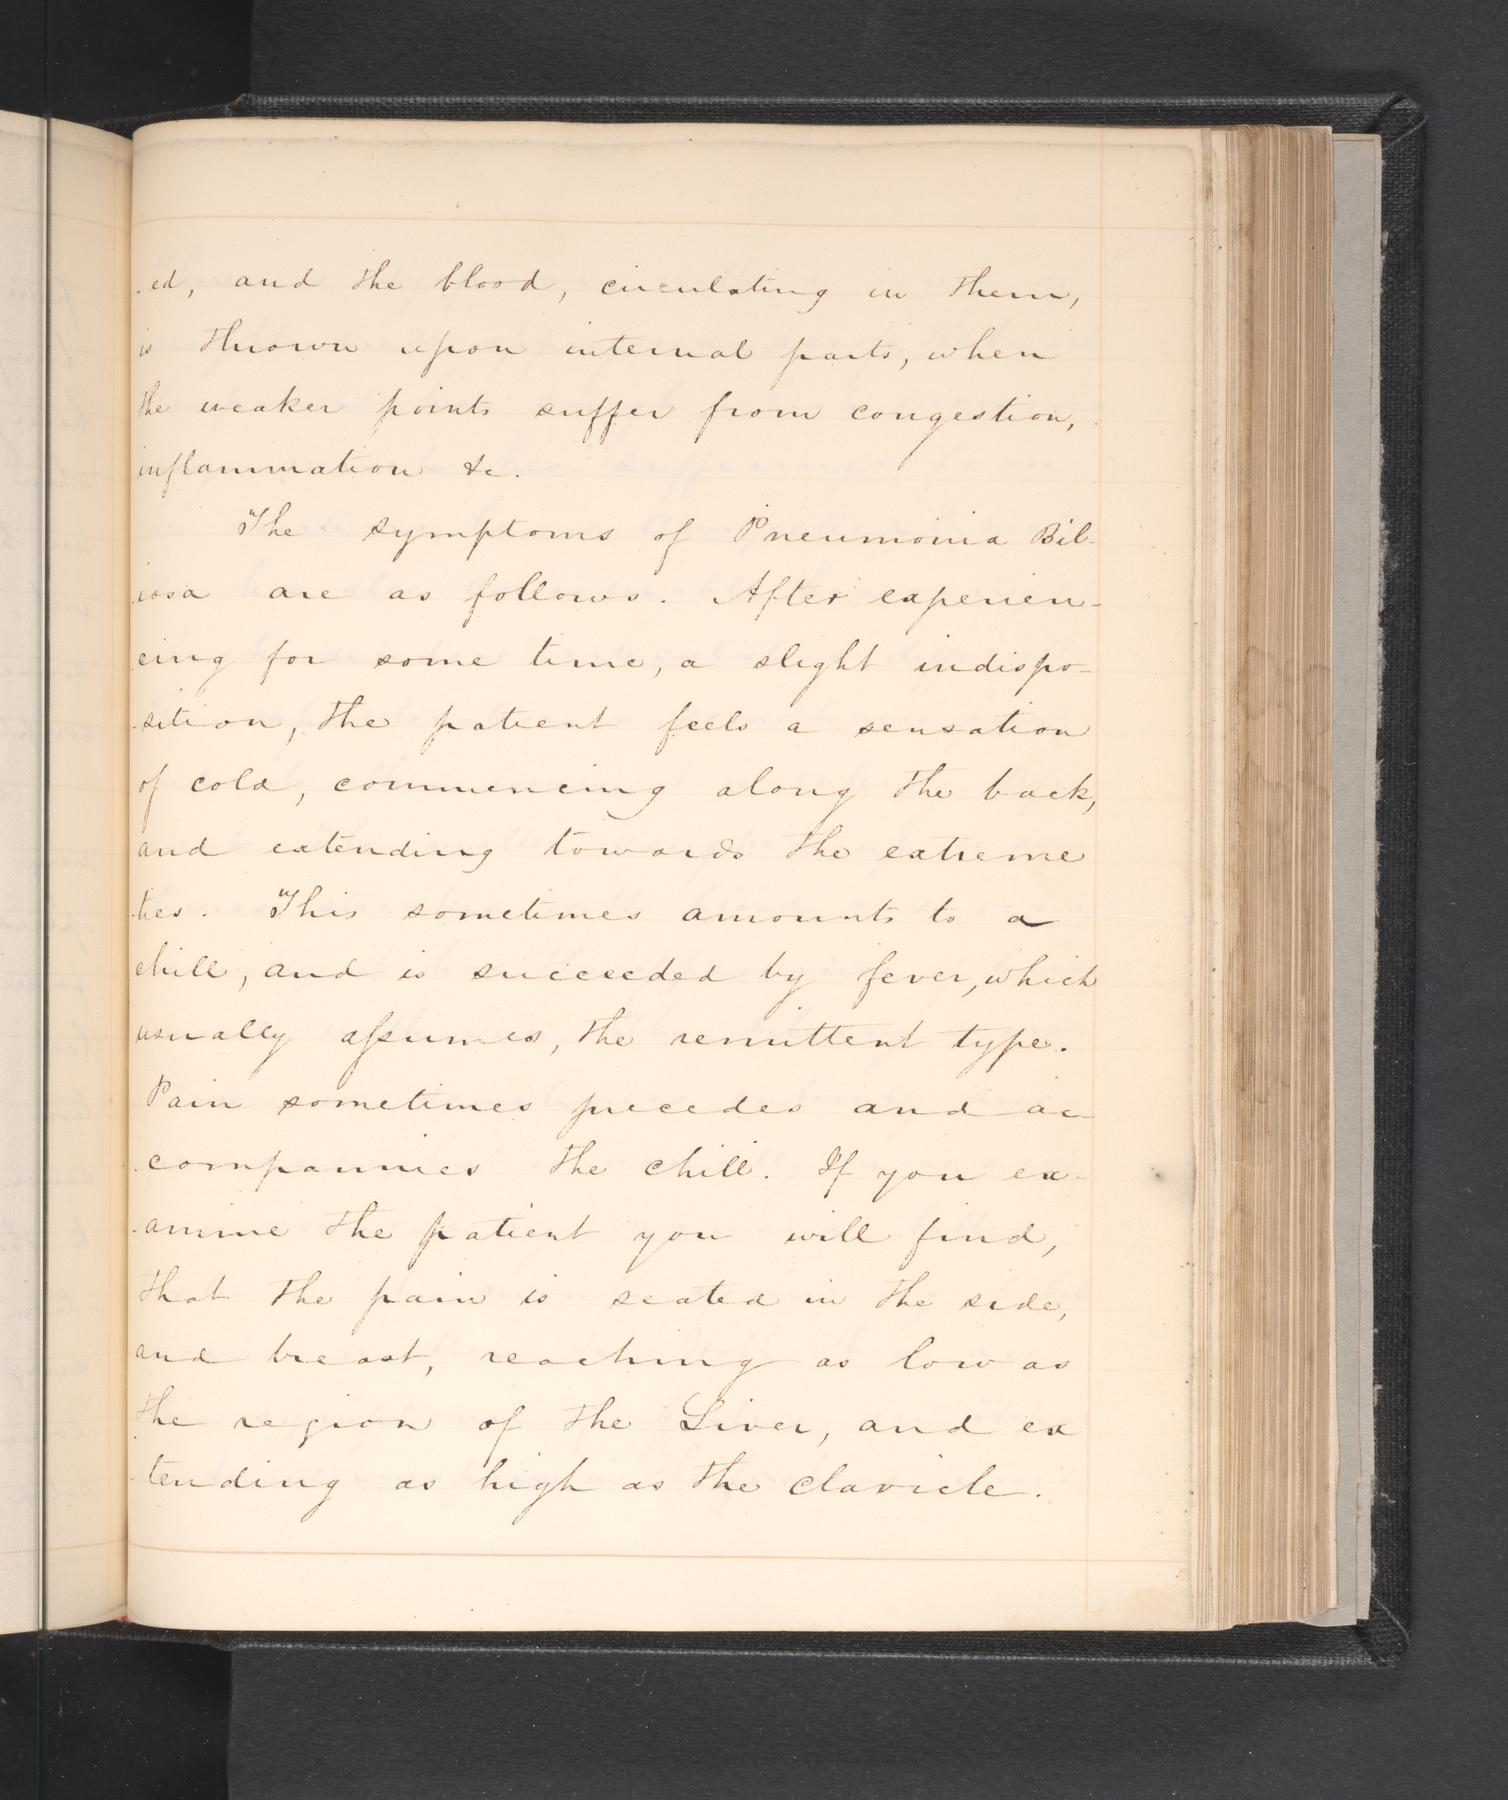 -ed, and the blood, circulating in them,
is thrown upon internal parts, when
the weaker points suffer from congestion,
inflammation &c.
The symptoms of Pneumonia Bil-
iosa are as follows. After experien-
cing for some time, a slight indispo-
-sition, the patient feels a sensation
of cold, commencing along the back,
and extending towards the extreme
-ties. This sometimes amounts to a
chill, and is succeeded by fever, which
usually aſsumes, the remittent type.
Pain sometimes precedes and ac-
-companies the chill. If you ex-
-amine the patient you will find,
that the pain is seated in the side,
and breast, reaching as low as
the region of the Liver, and ex
-tending as high as the clavicle.